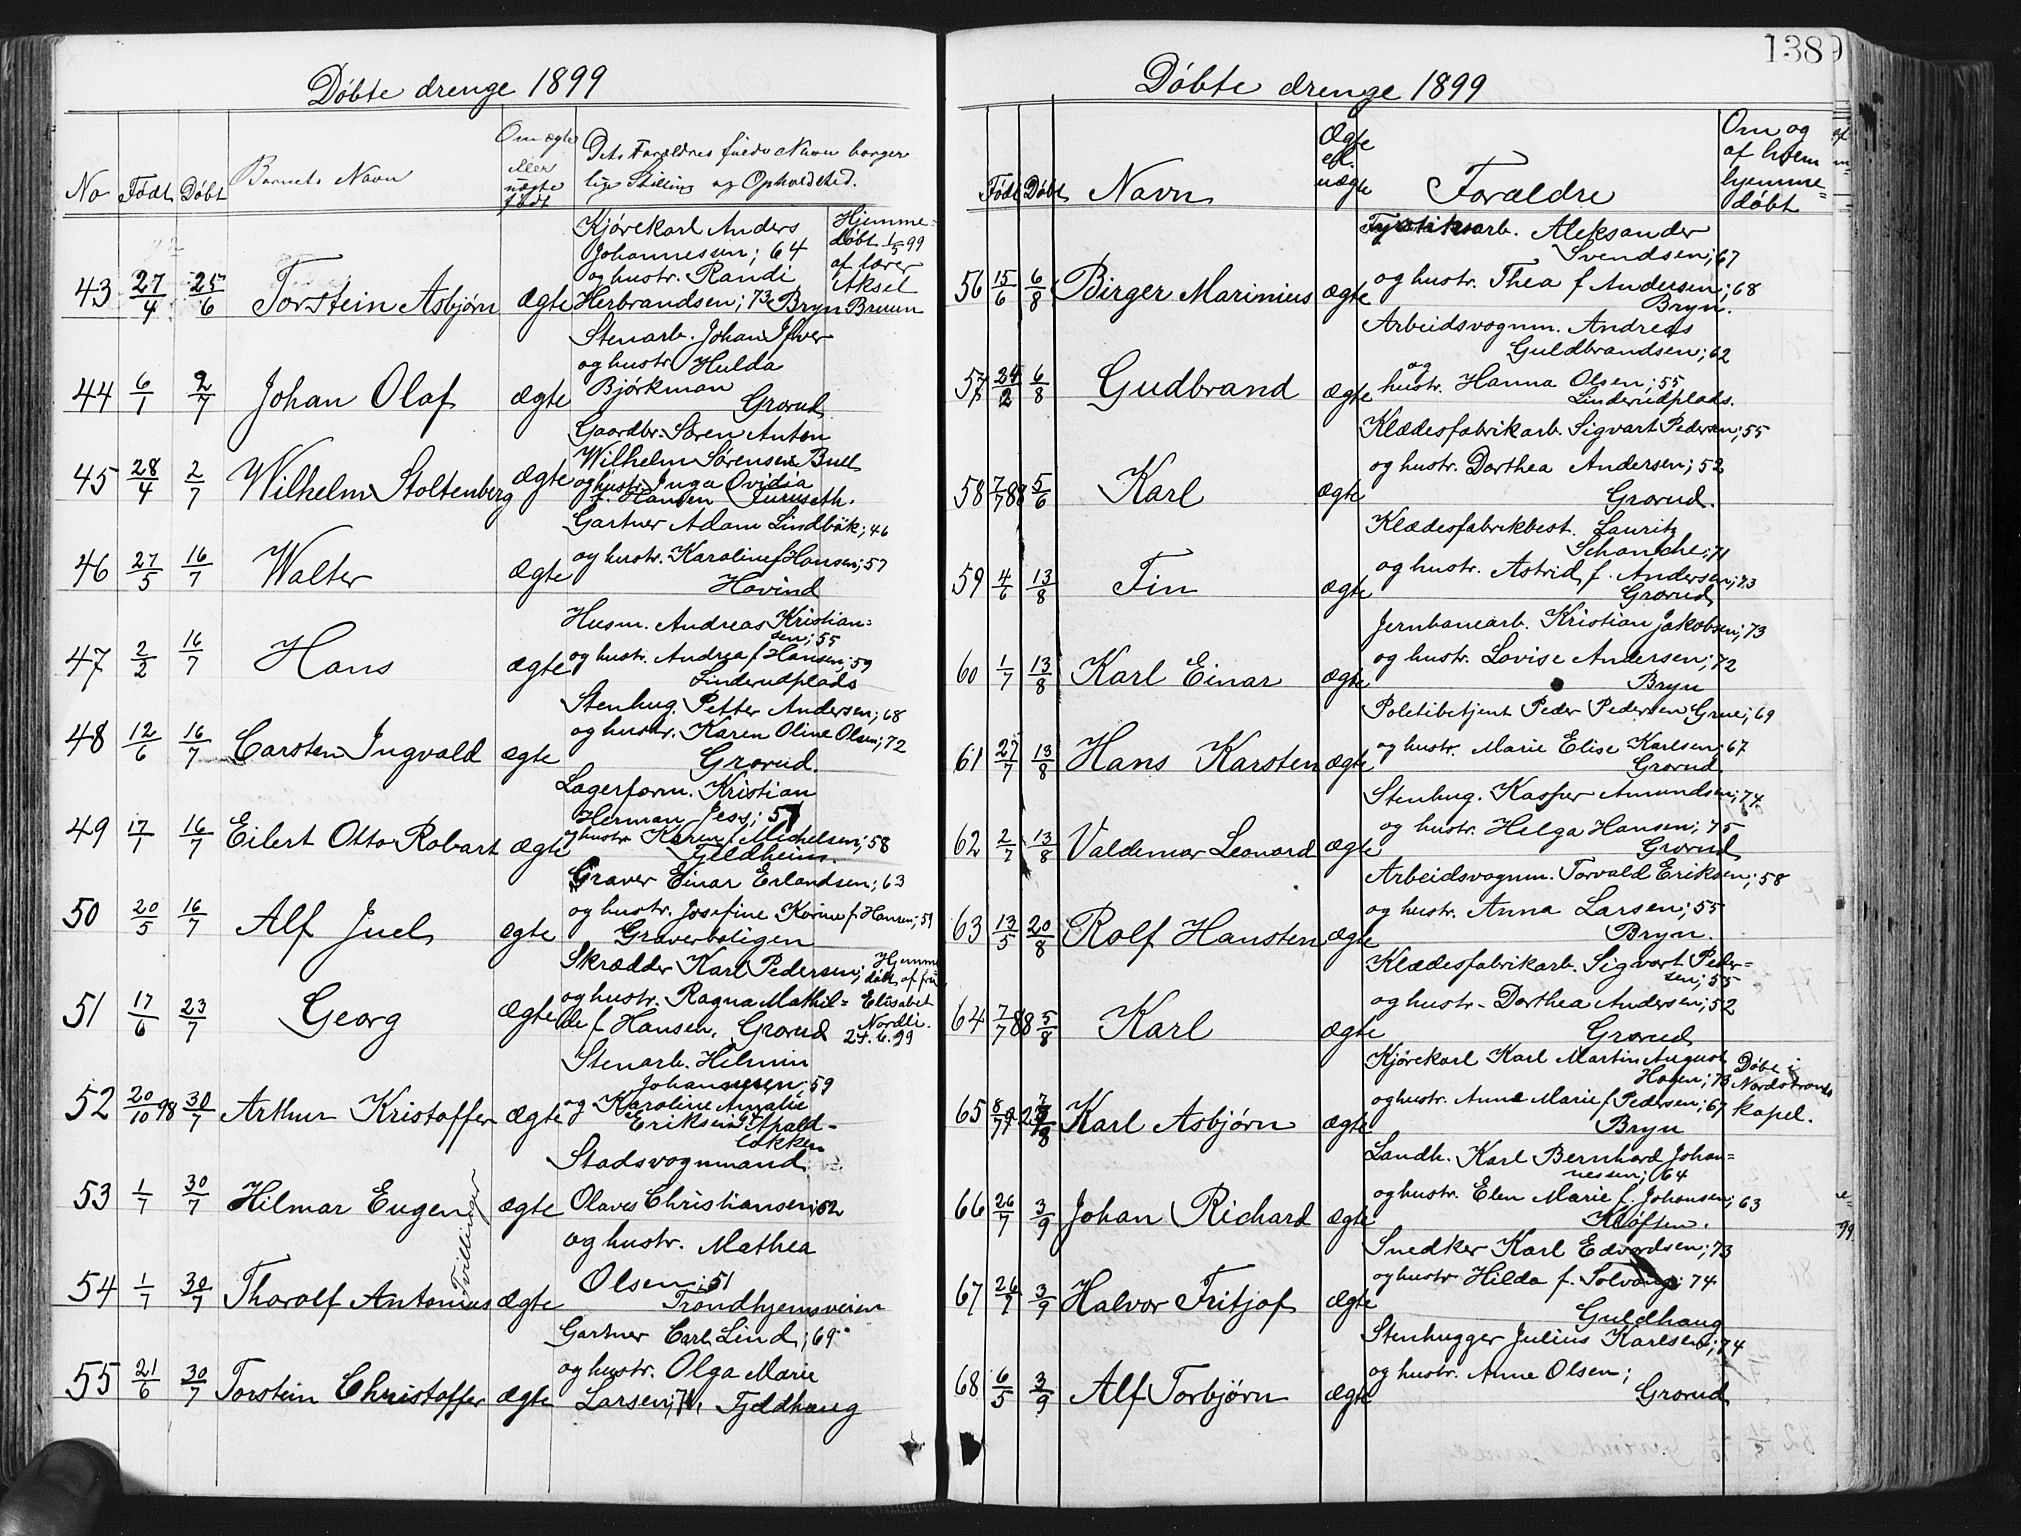 Döbte drenge 1899
No Født Døbt Barnets Navn Om ægte eller uægte født Dets Forældres fulde Navn borger
lige Stilling og Opholdsted.
43 27/4 25/6 Torstein Asbjørn ægte Kjørekarl Anders
Johannessen; 64
og hustr. Randi
Herbrandsen; 73 Bryn
Hjemme=
døbt 1/5 99
af lærer
Aksel
Bruun
44 6/1 2/7 Johan Olaf ægte Stenarb. Johan
og hustr. Hulda
Bjørkman
Grorud
45 28/4 2/7 Wilhelm Stoltenberg ægte Gaardbr. Søren Anton
Wilhelm Sørensen Bull
og hustr. Inga Ovidia
f. Hansen Furuseth.
46 27/5 16/7 Walter ægte Gartner Adam Lindbäk; 46
og hustr. Karoline f Hansen; 57
Hovind
47 2/2 16/7 Hans ægte Husm. Andreas Kristian=
sen; 55
og hustr. Andrea f Hansen; 59
Linderudplads
48 12/6 16/7 Carsten Ingvald ægte Stenhug. Petter Andersen; 68
og hustr. Karen Oline Olsen; 72
Grorud.
49 17/1 16/7 Eilert Otto Robart ægte Lagerform. Kristian
Herman Jess; 57
og hustr. Karen f Michelsen; 58
Fjeldheim.
50 20/5 16/7 Alf Juel ægte Graver Einar Erlandsen; 63
og hustr. Josefine Korine f. Hansen; 59
Graverboligen
51 17/6 23/7 Georg ægte Skrædder Karl Pedersen;
og hustr. Ragna Mathil=
de f Hansen, Grorud
Hjemme
døbt af fru
Elisabet
Nordli.
24.6.99
52 20/10 98 30/7 Arthur Kristoffer ægte Stenarb. Hilmin
Johannesen; 59
og Karoline Amalie
Eriksen
løkken
53 1/7 30/7 Hilmar Eugen ægte Stadsvognmand
Olaves Christiansen; 52
og hustr. Mathea
Tvillinger
54 1/7 30/7 Thorolf Antonius ægte Olsen; 51
Trondhjemsveien
55 21/6 30/7 Torstein Christoffer ægte Gartner Carl Lind; 69
og hustr. Olga Marie
Larsen; 71, Fjeldhaug
138
Døbte drenge 1899
Født Døbt Navn Ægte el. uægte Forældre Om og
af hvem
hjemme=
døbt
56 15/6 6/8 Birger Marinius ægte Fyrstikarb. Aleksander
Svendsen; 67
og hustr. Thea f Andersen; 68
Bryn.
57 24/2 6/8 Gudbrand ægte Arbeidsvognm. Andreas
Guldbrandsen; 62
og hustr. Hanna Olsen; 55
Linderudplads.
58 7/7 88 5/6 Karl ægte Klædesfabrikarb. Sigvart Pedersen; 55
og hustr. Dorthea Andersen; 52
Grorud.
59 4/6 13/8 Fin ægte Klædesfabrikbest. Lauritz
Schanche; 71
og hustr. Astrid f. Andersen; 73
Grorud
60 1/7 13/8 Karl Einar ægte Jernbanearb. Kristian Jakobsen; 73
og hustr. Lovise Andersen; 72
Bryn
61 27/7 13/8 Hans Karsten ægte Politibetjent Peder Pedersen Grue; 69
og hustr. Marie Elise Karlsen; 67
Grorud.
62 2/7 13/8 Valdemar Leonard ægte Stenhug. Kasper Amundsen; 74
og hustr. Helga Hansen; 75
Grorud
63 13/5 20/8 Rolf Hansten ægte Arbeidsvognm. Torvald Eriksen; 58
og hustr. Anna Larsen; 55
Bryn.
64 7/7 88 5/8 Karl ægte Klædesfabrikarb. Sigvart Peder=
sen; 55
og hustr. Dorthea Andersen; 52
Grorud
65 Karl Asbjørn ægte Kjørekarl Karl Martin August
Hagen; 73
og hustr. Anne Marie f. Pedersen; 67
Bryn
Døbt i
Nordstrands
kapel.
66 26/7 3/9 Johan Richard ægte Landh. Karl Bernhard Johan=
nessen; 64
og hustr. Elen Marie f. Johansen; 63
Kløften.
67 26/7 3/9 Halvor Fritjof ægte Snedker Karl Edvardsen; 73
og hustr Hilda f. Solvang; 74
Guldhaug
68 6/5 3/9 Alf Torbjørn ægte Stenhugger Julius Karlsen; 74
og hustr. Anne Olsen;
Grorud